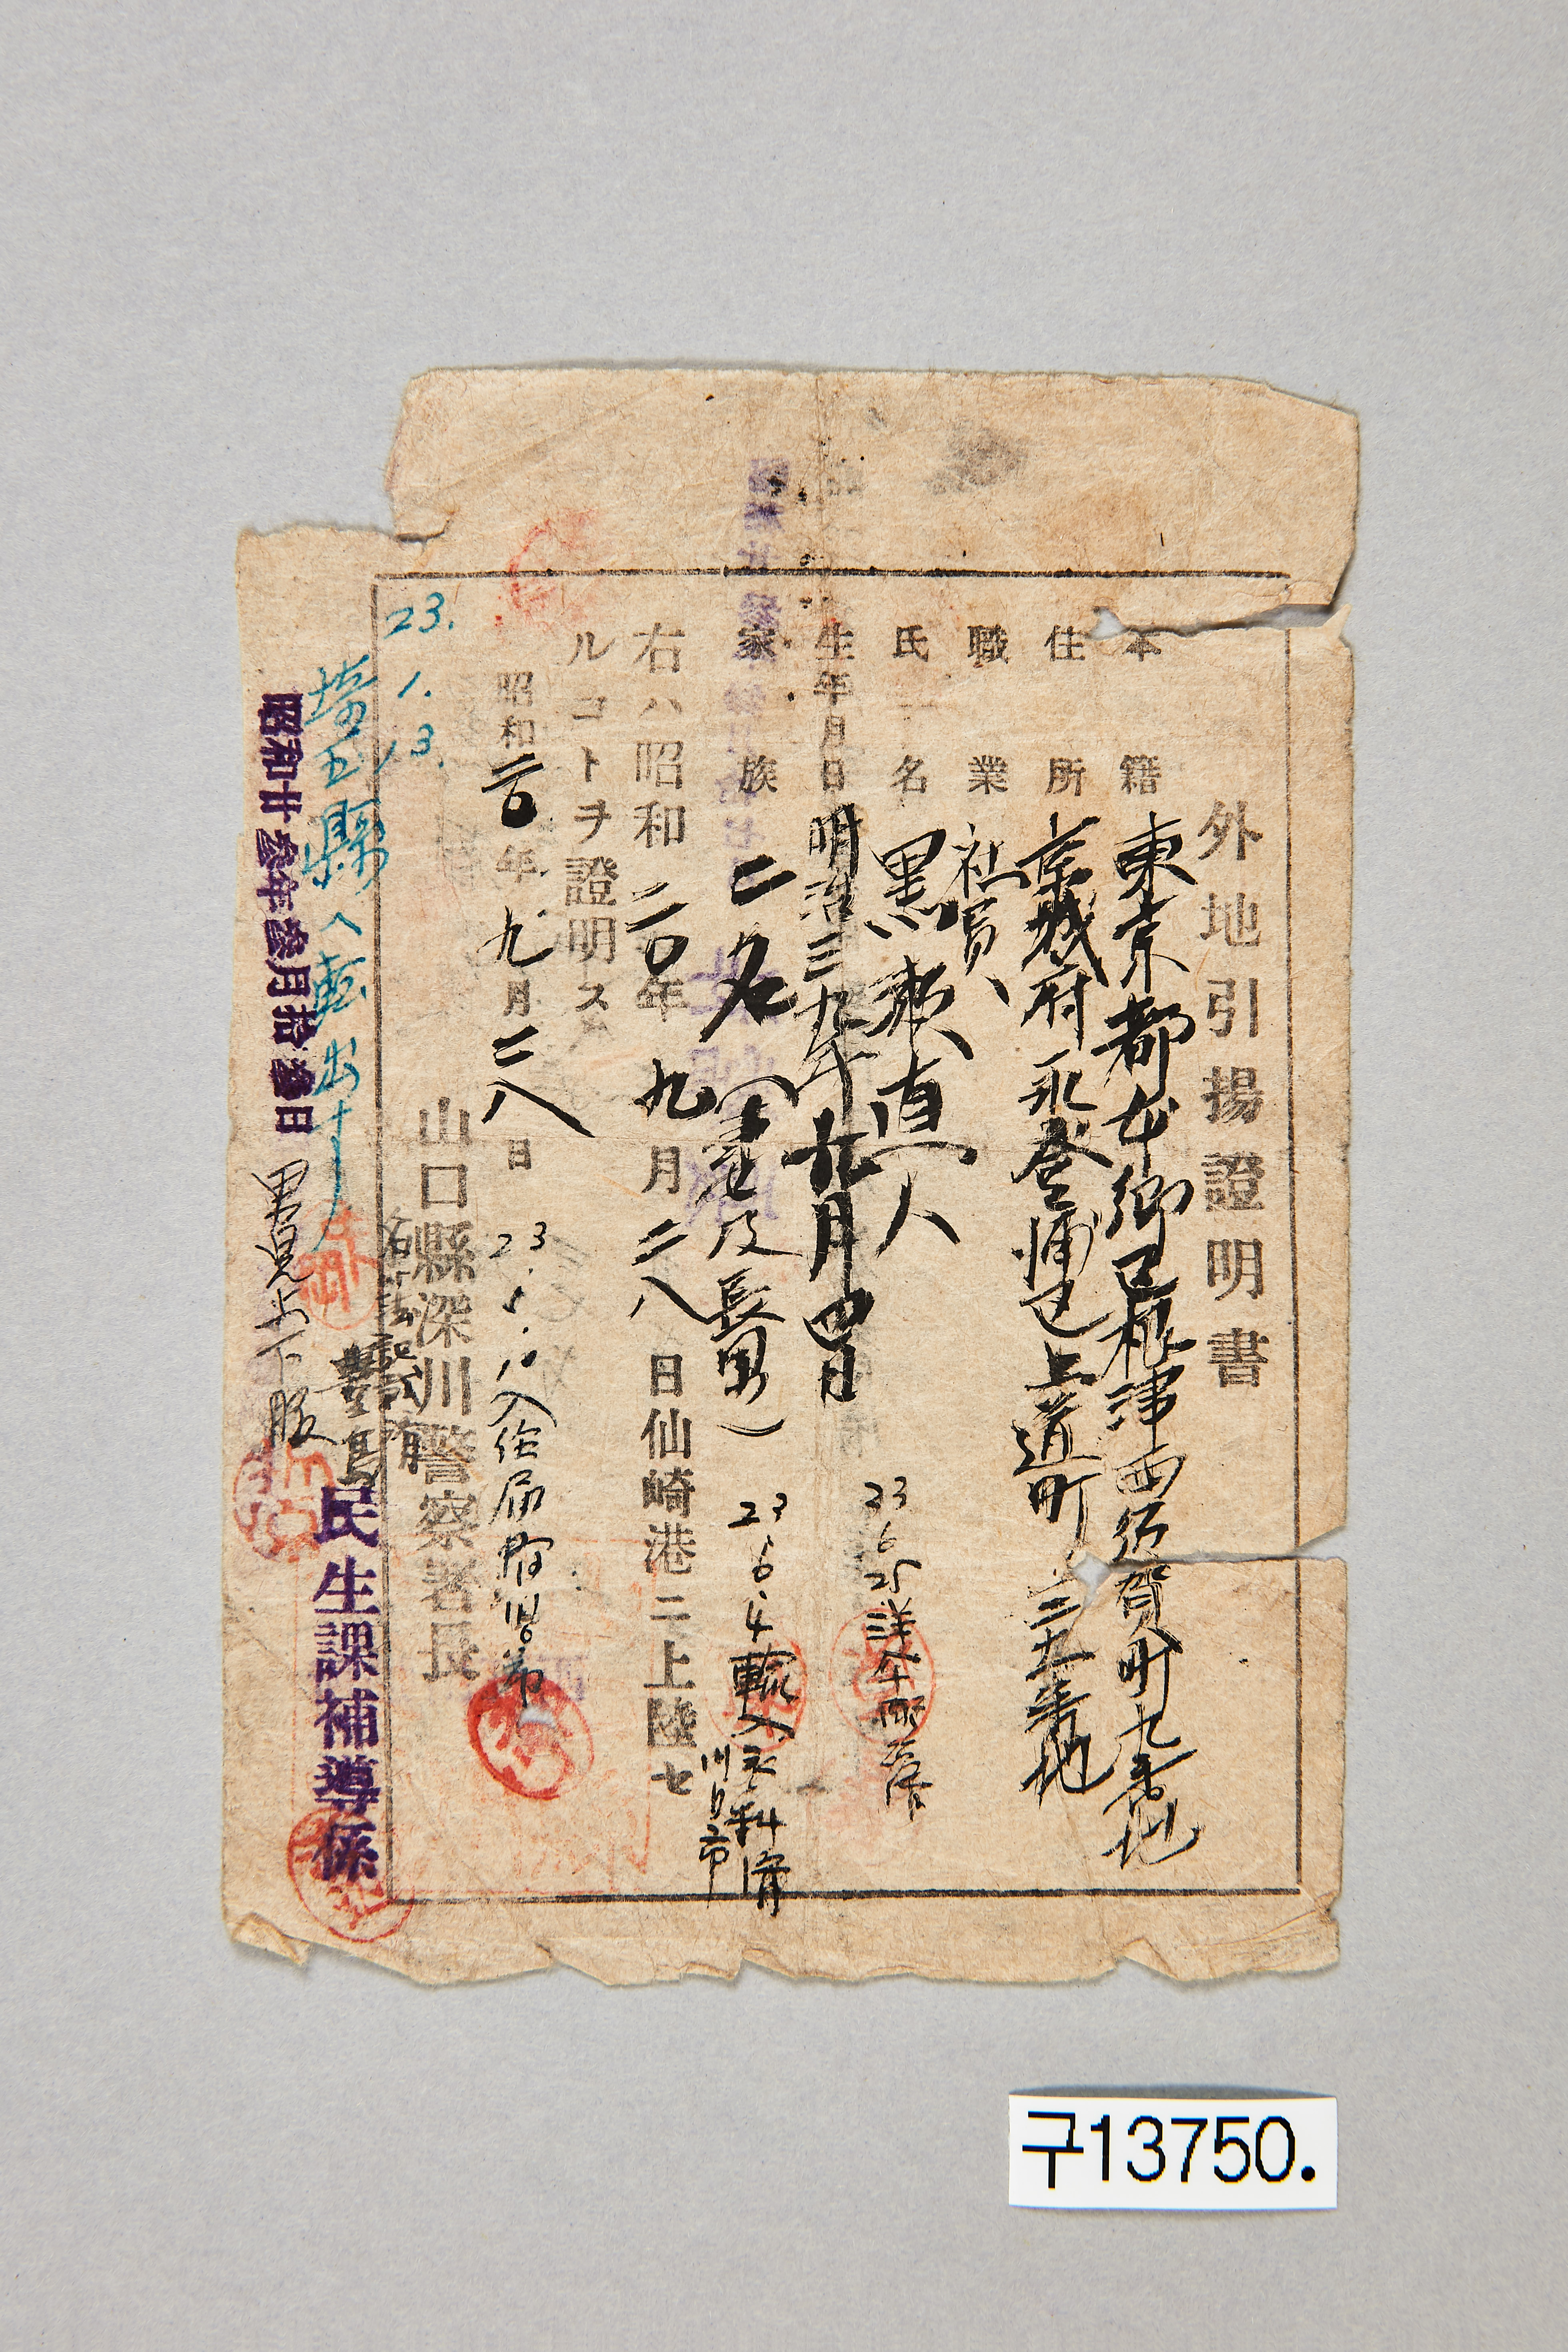 外地引揚證明書
本籍 東京都本郷区根津西須賀町九番地
住所 京城府永登浦区上道町三五番地
職業 社員
氏名 黒瀬直人
生年月日 明治三九年九月四日
家族 二名(妻及長男)
右ハ昭和二〇年九月二八日仙崎港ニ上陸セ
ルコトヲ證明ス
昭和二〇年九月二八日
山口縣深川警察署長
23.6.25
23.6.4 輸入
川口市
23.5.10 入
23.1.13.
埼玉縣へ転出
民生課補導係
昭和廿参年参月拾参日
구13750.